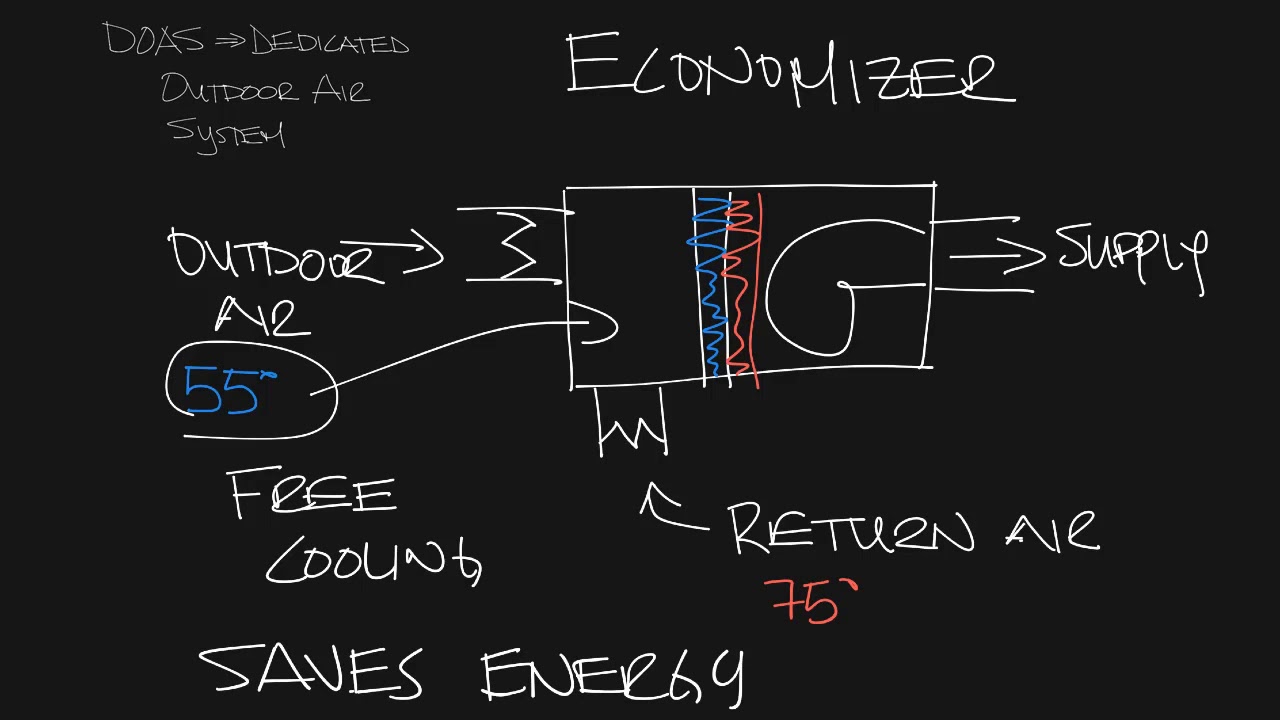 DOAS ⇒ DEDICATED
OUTDOOR AIR
SYSTEM
ECONOMIZER
OUTDOOR
AIR
55°
SUPPLY
FREE
COOLING
RETURN AIR
75°
SAVES ENERGY